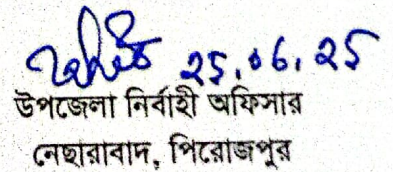 25.06.25
উপজেলা নির্বাহী অফিসার
নেছারাবাদ, পিরোজপুর